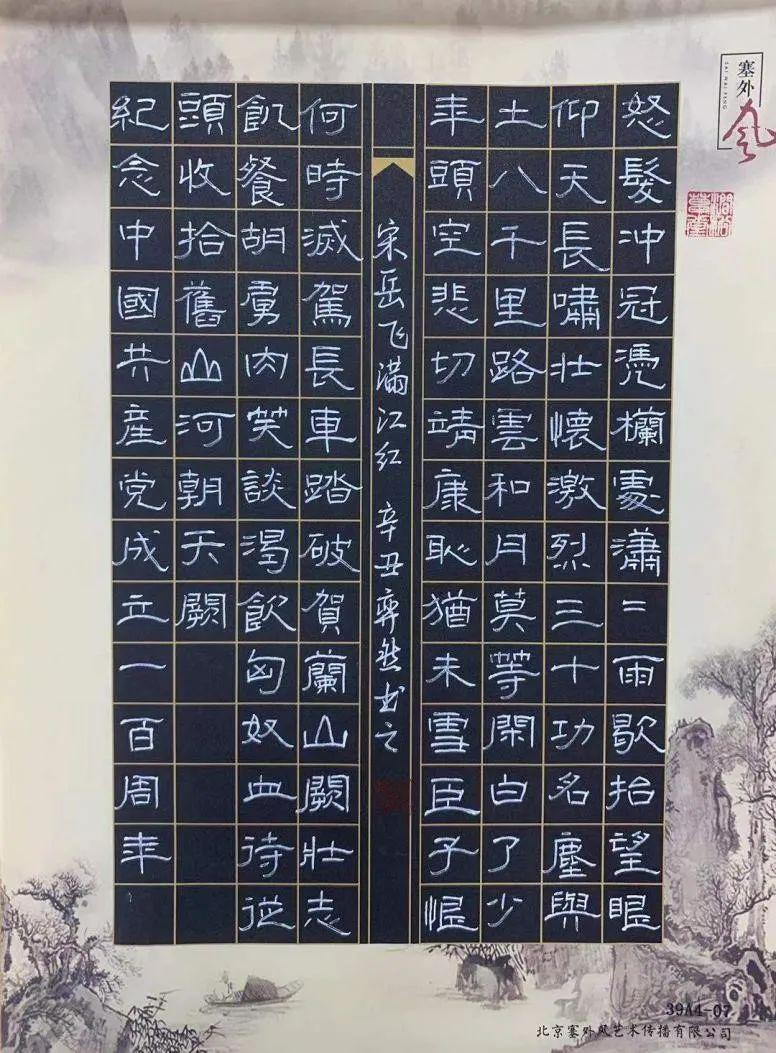 塞外风
SAI WAI FENG
怒髮冲冠凴欄處瀟二雨歇抬望眼
仰天長嘯壯懷激烈三十功名塵與
土八千里路雲和月莫等閑白了少
年頭空悲切靖康恥猶未雪臣子恨
宋岳飞满江红 辛丑弈然书之
何時滅駕長車踏破賀蘭山闕壯志
飢餐胡虜肉笑談渴飲匈奴血待從
頭收拾舊山河朝天闕
紀念中國共産党成立一百周年
39A4-07
北京塞外风艺术传播有限公司